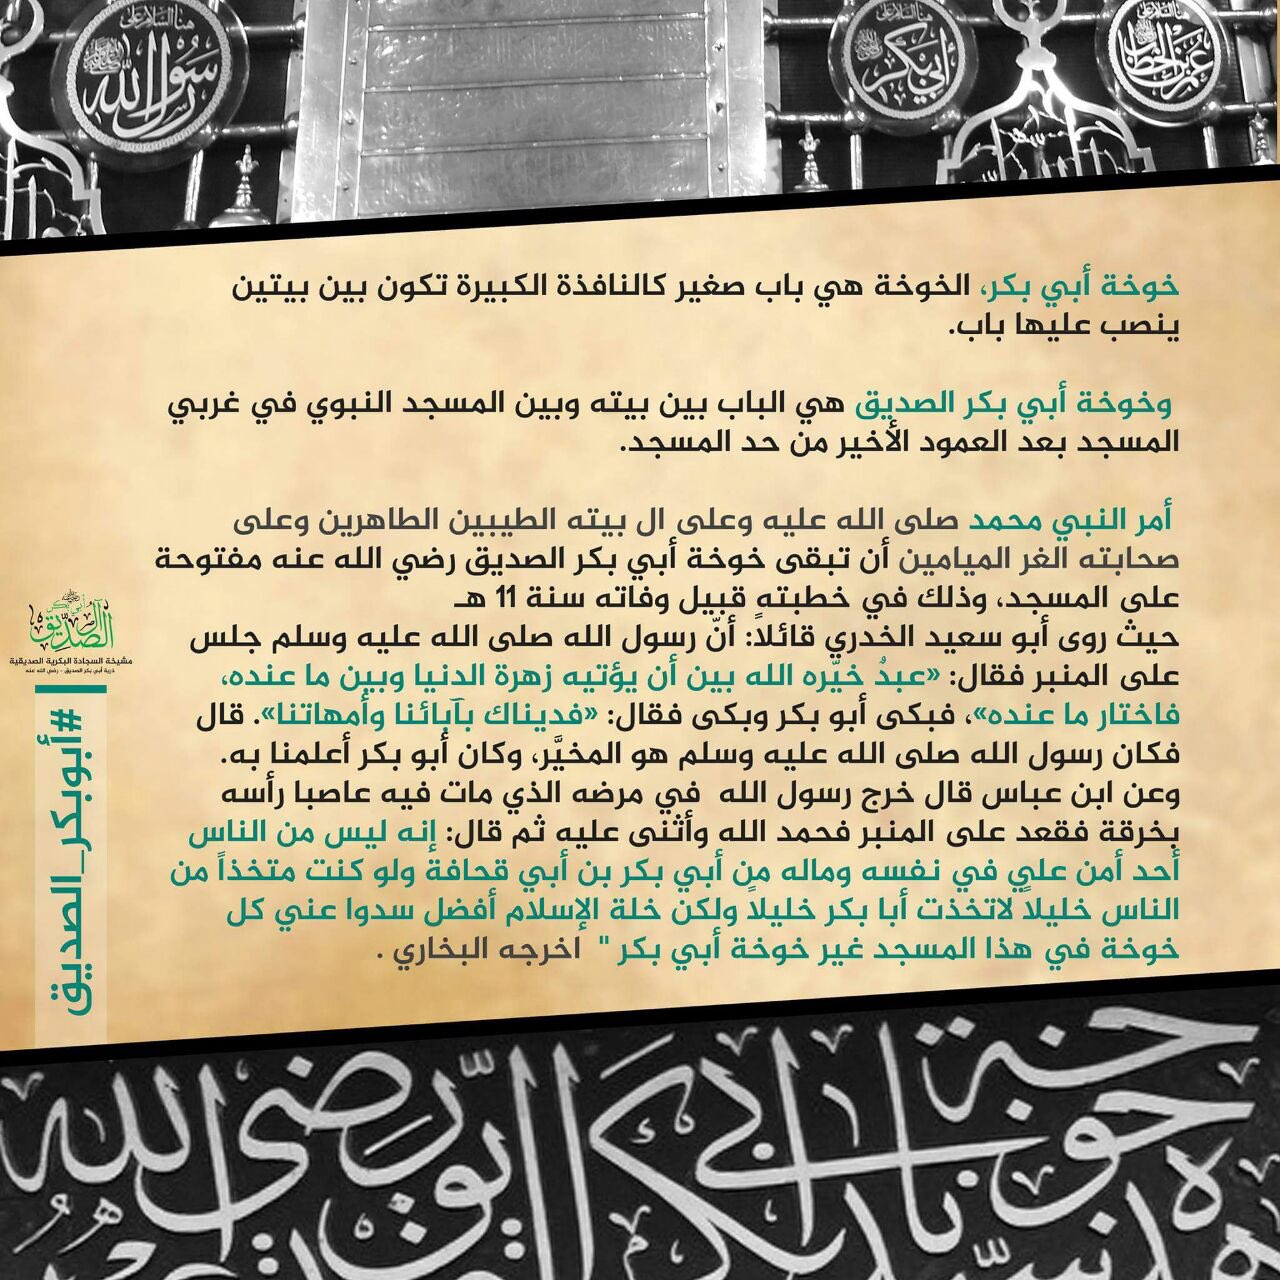 هنا السلام على
رسول الله
هنا السلام على
أبي بكر
هنا السلام على
عمر بن الخطاب
خوخة أبي بكر، الخوخة هي باب صغير كالنافذة الكبيرة تكون بين بيتين
ينصب عليها باب.
وخوخة أبي بكر الصديق هي الباب بين بيته وبين المسجد النبوي في غربي
المسجد بعد العمود الأخير من حد المسجد.
أمر النبي محمد صلى الله عليه وعلى ال بيته الطيبين الطاهرين وعلى
صحابته الغر الميامين أن تبقى خوخة أبي بكر الصديق رضي الله عنه مفتوحة
على المسجد، وذلك في خطبتهٍ قبيل وفاته سنة 11 هـ
حيث روى أبو سعيد الخدري قائلاً: أنّ رسول الله صلى الله عليه وسلم جلس
على المنبر فقال: «عبدٌ خيّره الله بين أن يؤتيه زهرة الدنيا وبين ما عنده،
فاختار ما عنده»، فبكى أبو بكر وبكى فقال: «فديناك بآبائنا وأمهاتنا». قال
فكان رسول الله صلى الله عليه وسلم هو المخيَّر، وكان أبو بكر أعلمنا به.
وعن ابن عباس قال خرج رسول الله في مرضه الذي مات فيه عاصبا رأسه
بخرقة فقعد على المنبر فحمد الله وأثنى عليه ثم قال: إنه ليس من الناس
أحد أمن علي في نفسه وماله من أبي بكر بن أبي قحافة ولو كنت متخذاً من
الناس خليلاً لاتخذت أبا بكر خليلاً ولكن خلة الإسلام أفضل سدوا عني كل
خوخة في هذا المسجد غير خوخة أبي بكر " اخرجه البخاري .
آل أبي بكر الصديق
مشيخة السجادة البكرية الصديقية
ذرية أبي بكر الصديق - رضي الله عنه
#أبوبكر_الصديق
هذه خوخة سيدنا أبي بكر الصديق رضي الله